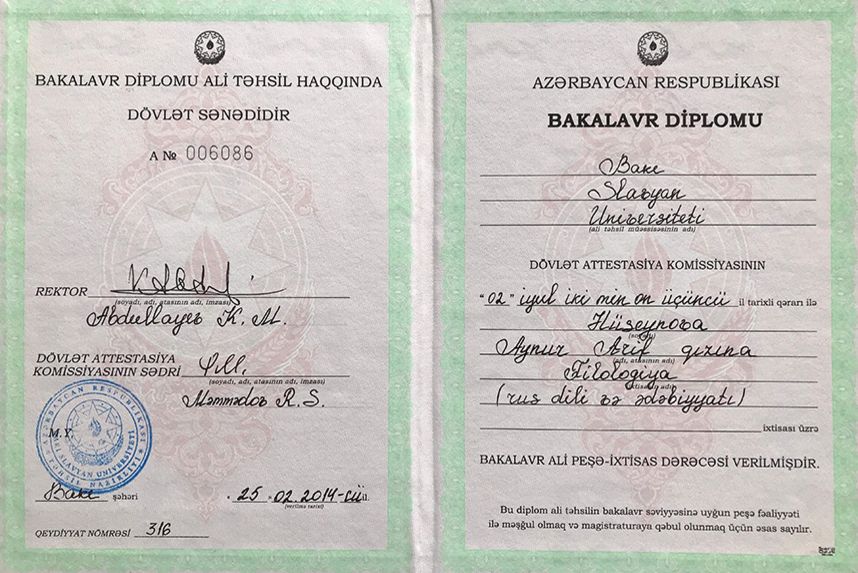 BAKALAVR DİPLOMU ALİ TƏHSİL HAQQINDA
DÖVLƏT SƏNƏDİDİR
A № 006086
REKTOR
(soyadı, adı, atasının adı, imzası)
Abdullayev K. M.
DÖVLƏT ATTESTASİYA
KOMİSSİYASININ SƏDRİ
(soyadı, adı, atasının adı, imzası)
Məmmədov R. S.
AZƏRBAYCAN RESPUBLİKASI
TƏHSİL NAZİRLİYİ
SLAVYAN UNİVERSİTETİ
M.Y.
Bakı şəhəri
"25" 02.2014-cü il.
(verilmə tarixi)
QEYDİYYAT NÖMRƏSİ 316
AZƏRBAYCAN RESPUBLİKASI
BAKALAVR DİPLOMU
Bakı
Slavyan
Universiteti
(ali təhsil müəssisəsinin adı)
DÖVLƏT ATTESTASİYA KOMİSSİYASININ
"02" iyul iki min on üçüncü il tarixli qərarı ilə
Hüseynova
(soyadı)
Aynur Arif qızına
(adı, atasının adı)
Filologiya
(rus dili və ədəbiyyatı)
ixtisası üzrə
BAKALAVR ALİ PEŞƏ-İXTİSAS DƏRƏCƏSİ VERİLMİŞDİR.
Bu diplom ali təhsilin bakalavr səviyyəsinə uyğun peşə fəaliyyəti
ilə məşğul olmaq və magistraturaya qəbul olunmaq üçün əsas sayılır.